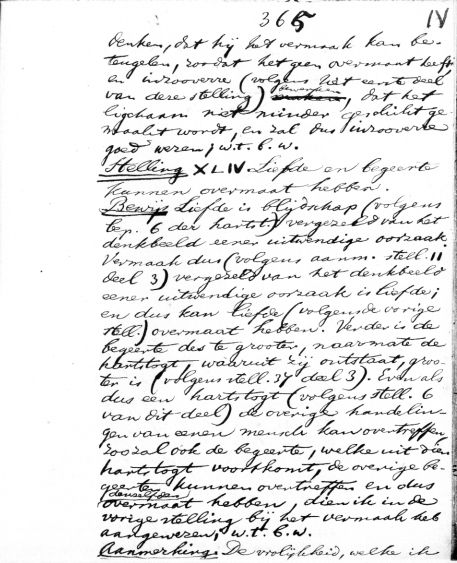 365 IV
denken, dat hij het vermaak kan be-
teugelen, zoodat het geen overmaat heeft,
en inzooverre (volgens het eerste deel
van deze stelling) bewerken, dat het
ligchaam niet minder geschikt ge-
maakt wordt, en zal dus inzooverre
goed wezen; w.t.b.w.
Stelling XLIV Liefde en begeerte
kunnen overmaat hebben.
Bewijs Liefde is blijdschap (volgens
bep. 6 der hartst.) vergezeld van het
denkbeeld eener uitwendige oorzaak.
Vermaak dus (volgens aanm. stell. 11
deel 3) vergezeld van het denkbeeld
eener uitwendige oorzaak is liefde;
en dus kan liefde (volgens de vorige
stell.) overmaat hebben. Verder is de
begeerte des te grooter, naarmate de
hartstogt, waaruit zij ontstaat, groo-
ter is (volgens stell. 37 deel 3). Even als
dus een hartstogt (volgens stell. 6
van dit deel) de overige handelin-
gen van eenen mensch kan overtreffen,
zoo zal ook de begeerte, welke uit dien
hartstogt voortkomt, de overige be-
geerten kunnen overtreffen en dus
denzelfden
overmaat hebben, dien ik in de
vorige stelling bij het vermaak heb
aangewezen; w.t.b.w.
Aanmerking. De vrolijkheid, welke ik